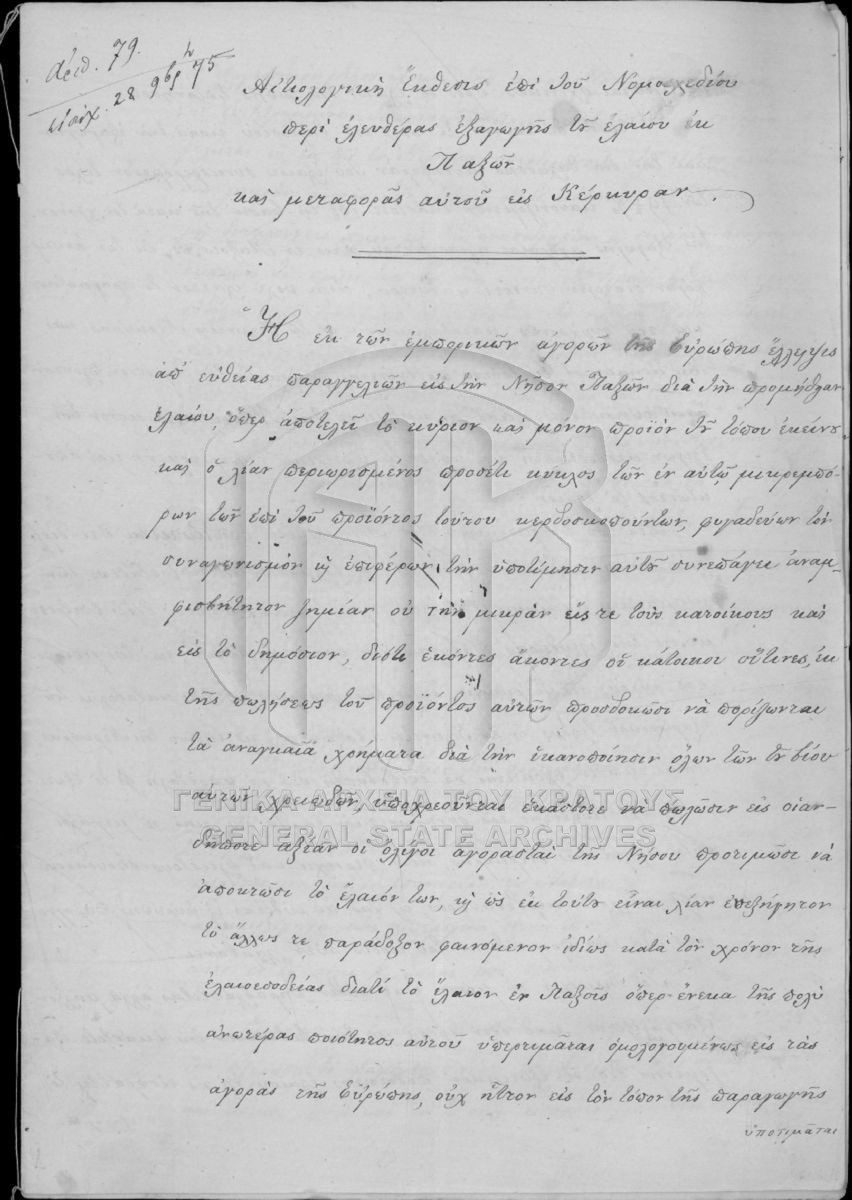 ἀριθ. 79.
εἰσήχ. 28 9βρ 75
Αἰτιολογικὴ Ἔκθεσις ἐπὶ τοῦ Νομοσχεδίου
περὶ ἐλευθέρας ἐξαγωγῆς τοῦ ἐλαίου ἐκ
Παξῶν
καὶ μεταφορᾶς αὐτοῦ εἰς Κέρκυραν.
Ἡ ἐκ τῶν ἐμπορικῶν ἀγορῶν τῆς Εὐρώπης ἔλλειψις
ἀπ' εὐθείας παραγγελιῶν εἰς τὴν Νῆσον Παξῶν διὰ τὴν προμήθειαν
ἐλαίου, ὅπερ ἀποτελεῖ τὸ κύριον καὶ μόνον προϊὸν τοῦ τόπου ἐκείνου
καὶ ὁ λίαν περιωρισμένος προσέτι κύκλος τῶν ἐν αὐτῷ μικρεμπό-
ρων τῶν ἐπὶ τοῦ προϊόντος τούτου κερδοσκοπούντων, φυγαδεύων τὸν
συναγωνισμὸν κ ἐπιφέρων τὴν ὑποτίμησιν αὐτοῦ συνεπάγει ἀναμ-
φισβήτητον ζημίαν οὐ τὴν μικρὰν εἴς τε τοὺς κατοίκους καὶ
εἰς τὸ δημόσιον, διότι ἑκόντες ἄκοντες οἱ κάτοικοι οἵτινες, ἐκ
τῆς πωλήσεως τοῦ προϊόντος αὐτῶν προσδοκῶσι νὰ πορίζωνται
τὰ ἀναγκαῖα χρήματα διὰ τὴν ἱκανοποίησιν ὅλων τῶν τοῦ βίου
αὐτῶν χρειωδῶν, ὑποχρεοῦνται ἑκάστοτε νὰ πωλῶσιν εἰς οἱαν-
δήποτε ἀξίαν οἱ ὀλίγοι ἀγορασταὶ τῆς Νήσου προτιμῶσι νὰ
ἀποκτῶσι τὸ ἔλαιόν των, κ ὡς ἐκ τούτου εἶναι λίαν ἐπεξήγητον
τὸ ἄλλως τε παράδοξον φαινόμενον ἰδίως κατὰ τὸν χρόνον τῆς
ἐλαιοεσοδείας διατί τὸ ἔλαιον ἐν Παξοῖς ὅπερ ἕνεκα τῆς πολὺ
ἀνωτέρας ποιότητος αὐτοῦ ὑπερτιμᾶται ὁμολογουμένως εἰς τὰς
ἀγορὰς τῆς Εὐρώπης, οὐχ ἧττον εἰς τὸν τόπον τῆς παραγωγῆς
ὑποτιμᾶται
ΓΕΝΙΚΑ ΑΡΧΕΙΑ ΤΟΥ ΚΡΑΤΟΥΣ
GENERAL STATE ARCHIVES